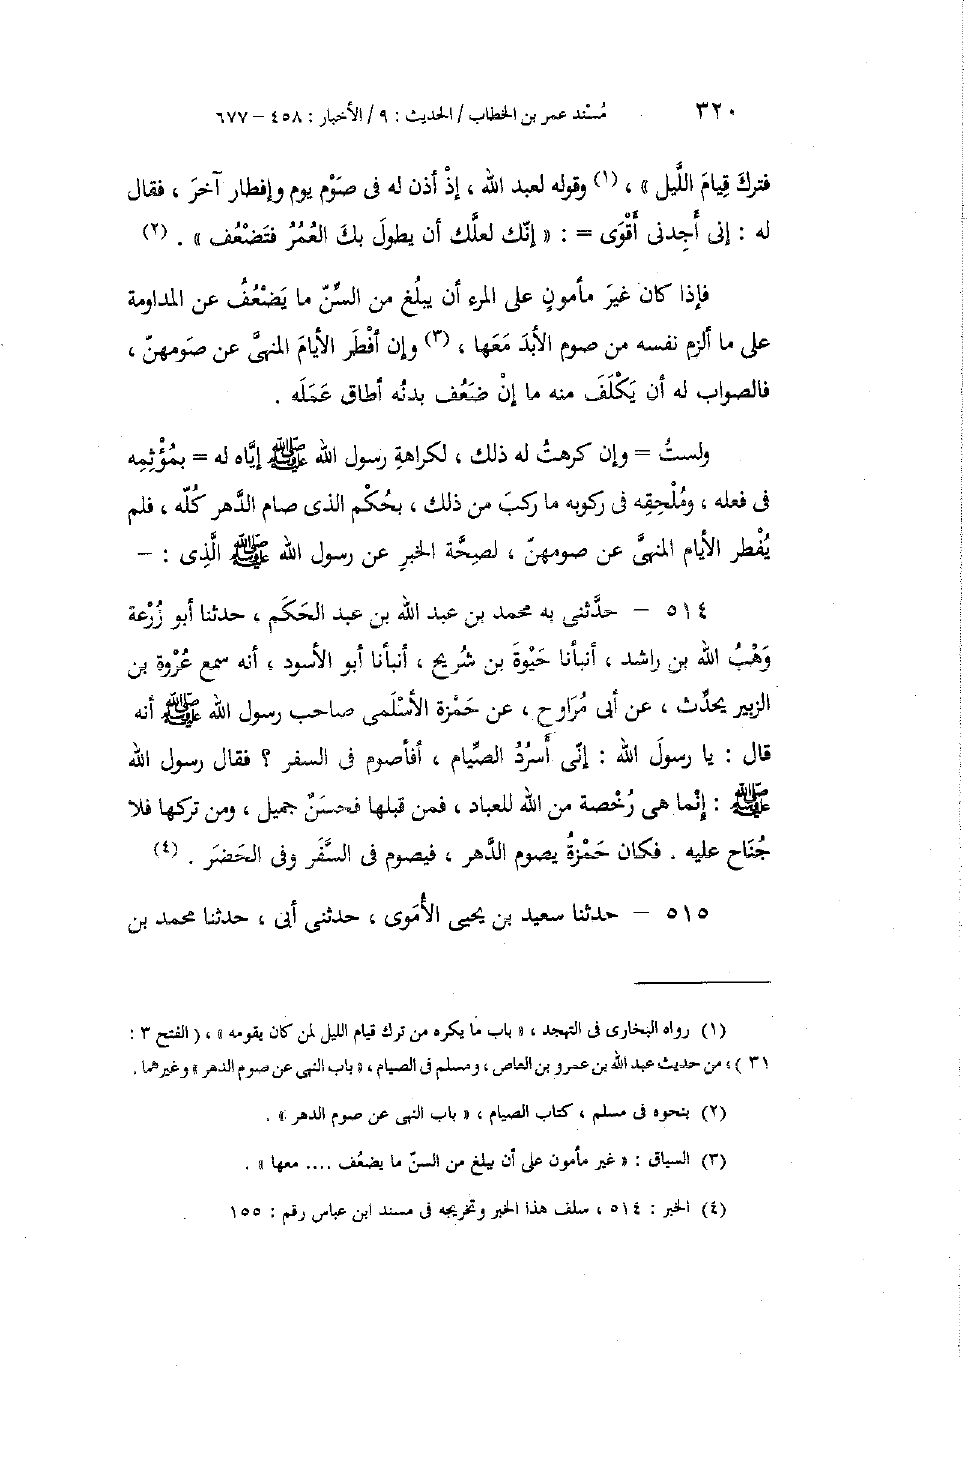 ٣٢٠ مُسْند عمر بن الخطاب / الحديث : ٩ / الأخبار : ٤٥٨ – ٦٧٧
فتركَ قِيامَ اللَّيل » ، (١) وقوله لعبد الله ، إذْ أذن له فى صَوْم يوم وإفطار آخرَ ، فقال
له : إنى أَجِدنى أَقْوَى = : « إنّك لعلَّك أن يطولَ بكَ العُمُرُ فتَضْعُف » . (٢)
فإذا كان غيرَ مأمونٍ على المرء أن يبلُغ من السنِّ ما يَضْعُفُ عن المداومة
على ما ألزم نفسه من صوم الأبدَ مَعَها ، (٣) وإن أفْطَر الأيامَ المنهىَّ عن صَومهنّ ،
فالصواب له أن يَكْلَفَ منه ما إنْ ضَعُف بدنُه أطاق عَمَلَه .
ولستُ = وإن كرهتُ له ذلك ، لكراهةِ رسول الله ﷺ إيَّاه له = بمُؤْثِمِه
فى فعله ، ومُلْحِقِه فى ركوبه ما ركبَ من ذلك ، بحُكْم الذى صام الدَّهر كُلّه ، فلم
يُفْطر الأيام المنهىَّ عن صومهنّ ، لصِحَّة الخبرِ عن رسول الله ﷺ الَّذِى : –
٥١٤ – حدَّثنى به محمد بن عبد الله بن عبد الحَكَم ، حدثنا أبو زُرْعة
وَهْبُ الله بن راشد ، أنبأنا حَيْوَةَ بن شُريح ، أنبأنا أبو الأسود ، أنه سمع عُرْوة بن
الزبير يحدِّث ، عن أبى مُرَاوِح ، عن حَمْزة الأسْلَمى صاحب رسول الله ﷺ أنه
قال : يا رسولَ الله : إنّى أَسرُدُ الصِّيام ، أفأصوم فى السفر ؟ فقال رسول الله
ﷺ : إنْما هى رُخْصة من الله للعباد ، فمن قبلها فحسَنٌ جميل ، ومن تركها فلا
جُنَاح عليه . فكان حَمْزةُ يصوم الدَّهر ، فيصوم فى السَّفَر وفى الحَضَر . (٤)
٥١٥ – حدثنا سعيد بن يحيى الأُمَوى ، حدثنى أبى ، حدثنا محمد بن
(١) رواه البخارى فى التهجد ، « باب ما يكره من ترك قيام الليل لمن كان يقومه » ، ( الفتح ٣ :
٣١ ) ، من حديث عبد الله بن عمرو بن العاص ، ومسلم فى الصيام ، « باب النهى عن صوم الدهر » وغيرهما .
(٢) بنحوه فى مسلم ، كتاب الصيام ، « باب النهى عن صوم الدهر » .
(٣) السياق : « غير مأمون على أن يبلغ من السنّ ما يضعُف .... معها » .
(٤) الخبر : ٥١٤ ، سلف هذا الخبر وتخريجه فى مسند ابن عباس رقم : ١٥٥